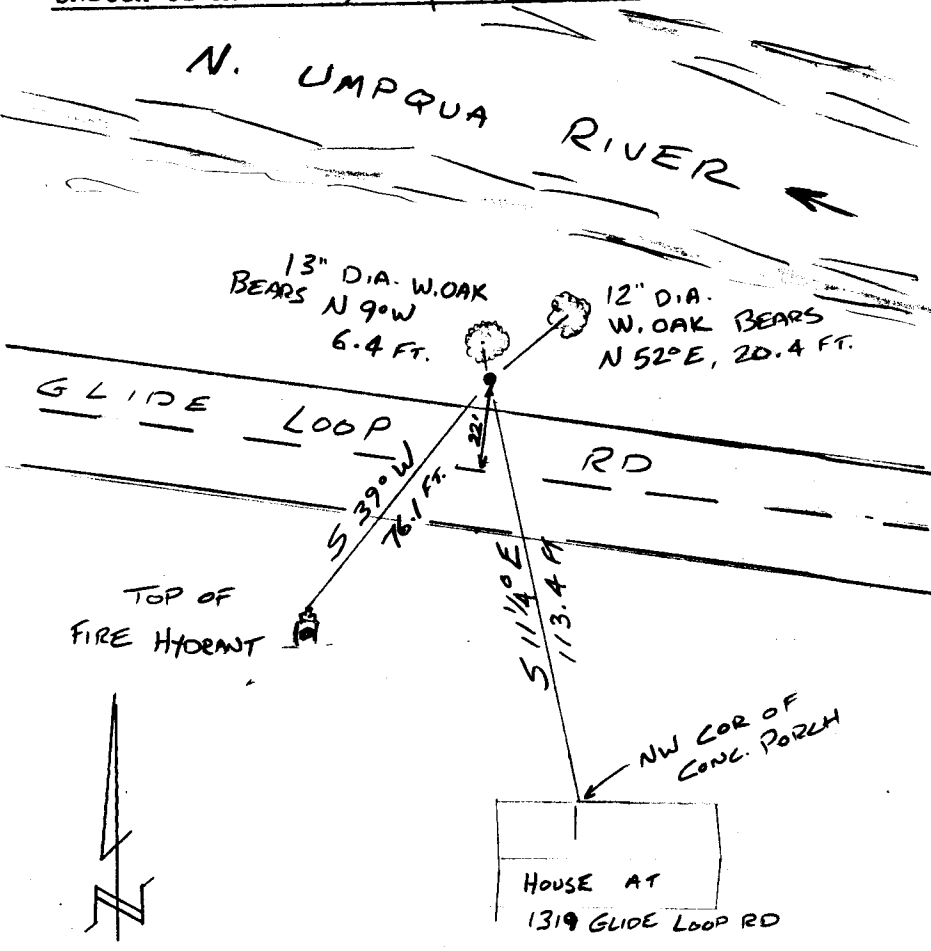 N. UMPQUA RIVER
13" DIA. W.OAK
BEARS N 9°W
6.4 FT.
12" DIA.
W. OAK BEARS
N 52° E, 20.4 FT.
GLIDE LOOP RD
22'
S 39° W
76.1 FT.
S 11 1/4° E
113.4 FT
TOP OF
FIRE HYDRANT
NW COR OF
CONC. PORCH
N
HOUSE AT
1319 GLIDE LOOP RD